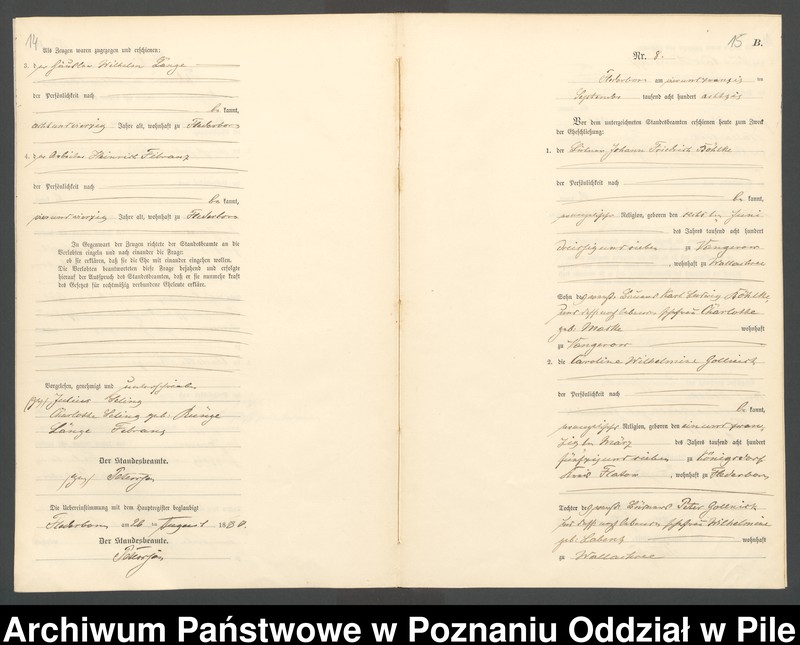 14
Als Zeugen waren zugezogen und erschienen:
3. der Häusler Wilhelm Lange
der Persönlichkeit nach
be kannt,
achtundvierzig Jahre alt, wohnhaft zu Flederborn
4. der Arbeiter Heinrich Febranz
der Persönlichkeit nach
be kannt,
vierundvierzig Jahre alt, wohnhaft zu Flederborn
In Gegenwart der Zeugen richtete der Standesbeamte an die
Verlobten einzeln und nach einander die Frage:
ob sie erklären, daß sie die Ehe mit einander eingehen wollen.
Die Verlobten beantworteten diese Frage bejahend und erfolgte
hierauf der Ausspruch des Standesbeamten, daß er sie nunmehr kraft
des Gesetzes für rechtmäßig verbundene Eheleute erkläre.
Vorgelesen, genehmigt und unterschrieben
(gez) Julius
Charlotte geb. Runge
Lange Febranz
Der Standesbeamte.
(gez)
Die Uebereinstimmung mit dem Hauptregister beglaubigt
Flederborn am 26 ten August 1880.
Der Standesbeamte.
15 B.
Nr. 8.
Flederborn am vierundzwanzig ten
September tausend acht hundert achtzig
Vor dem unterzeichneten Standesbeamten erschienen heute zum Zweck
der Eheschließung:
1. der Johann Friedrich Röhlke
der Persönlichkeit nach
be kannt,
evangelischer Religion, geboren den ten Juni
des Jahres tausend acht hundert
dreißigundsieben zu Vangerow
, wohnhaft zu Wallachsee
Sohn des Karl Ludwig Röhlke
und dessen noch lebenden Ehefrau Charlotte
geb. Maske wohnhaft
zu Vangerow
2. die Caroline Wilhelmine Gollnick
der Persönlichkeit nach
be kannt,
evangelischer Religion, geboren den einundzwan
zigten März des Jahres tausend acht hundert
fünfzigundsieben zu Königsdorf
Kreis Flatow, wohnhaft zu Flederborn
Tochter des Peter Gollnick
und dessen noch lebenden Ehefrau Wilhelmine
geb. wohnhaft
zu Wallachsee
Archiwum Państwowe w Poznaniu Oddział w Pile